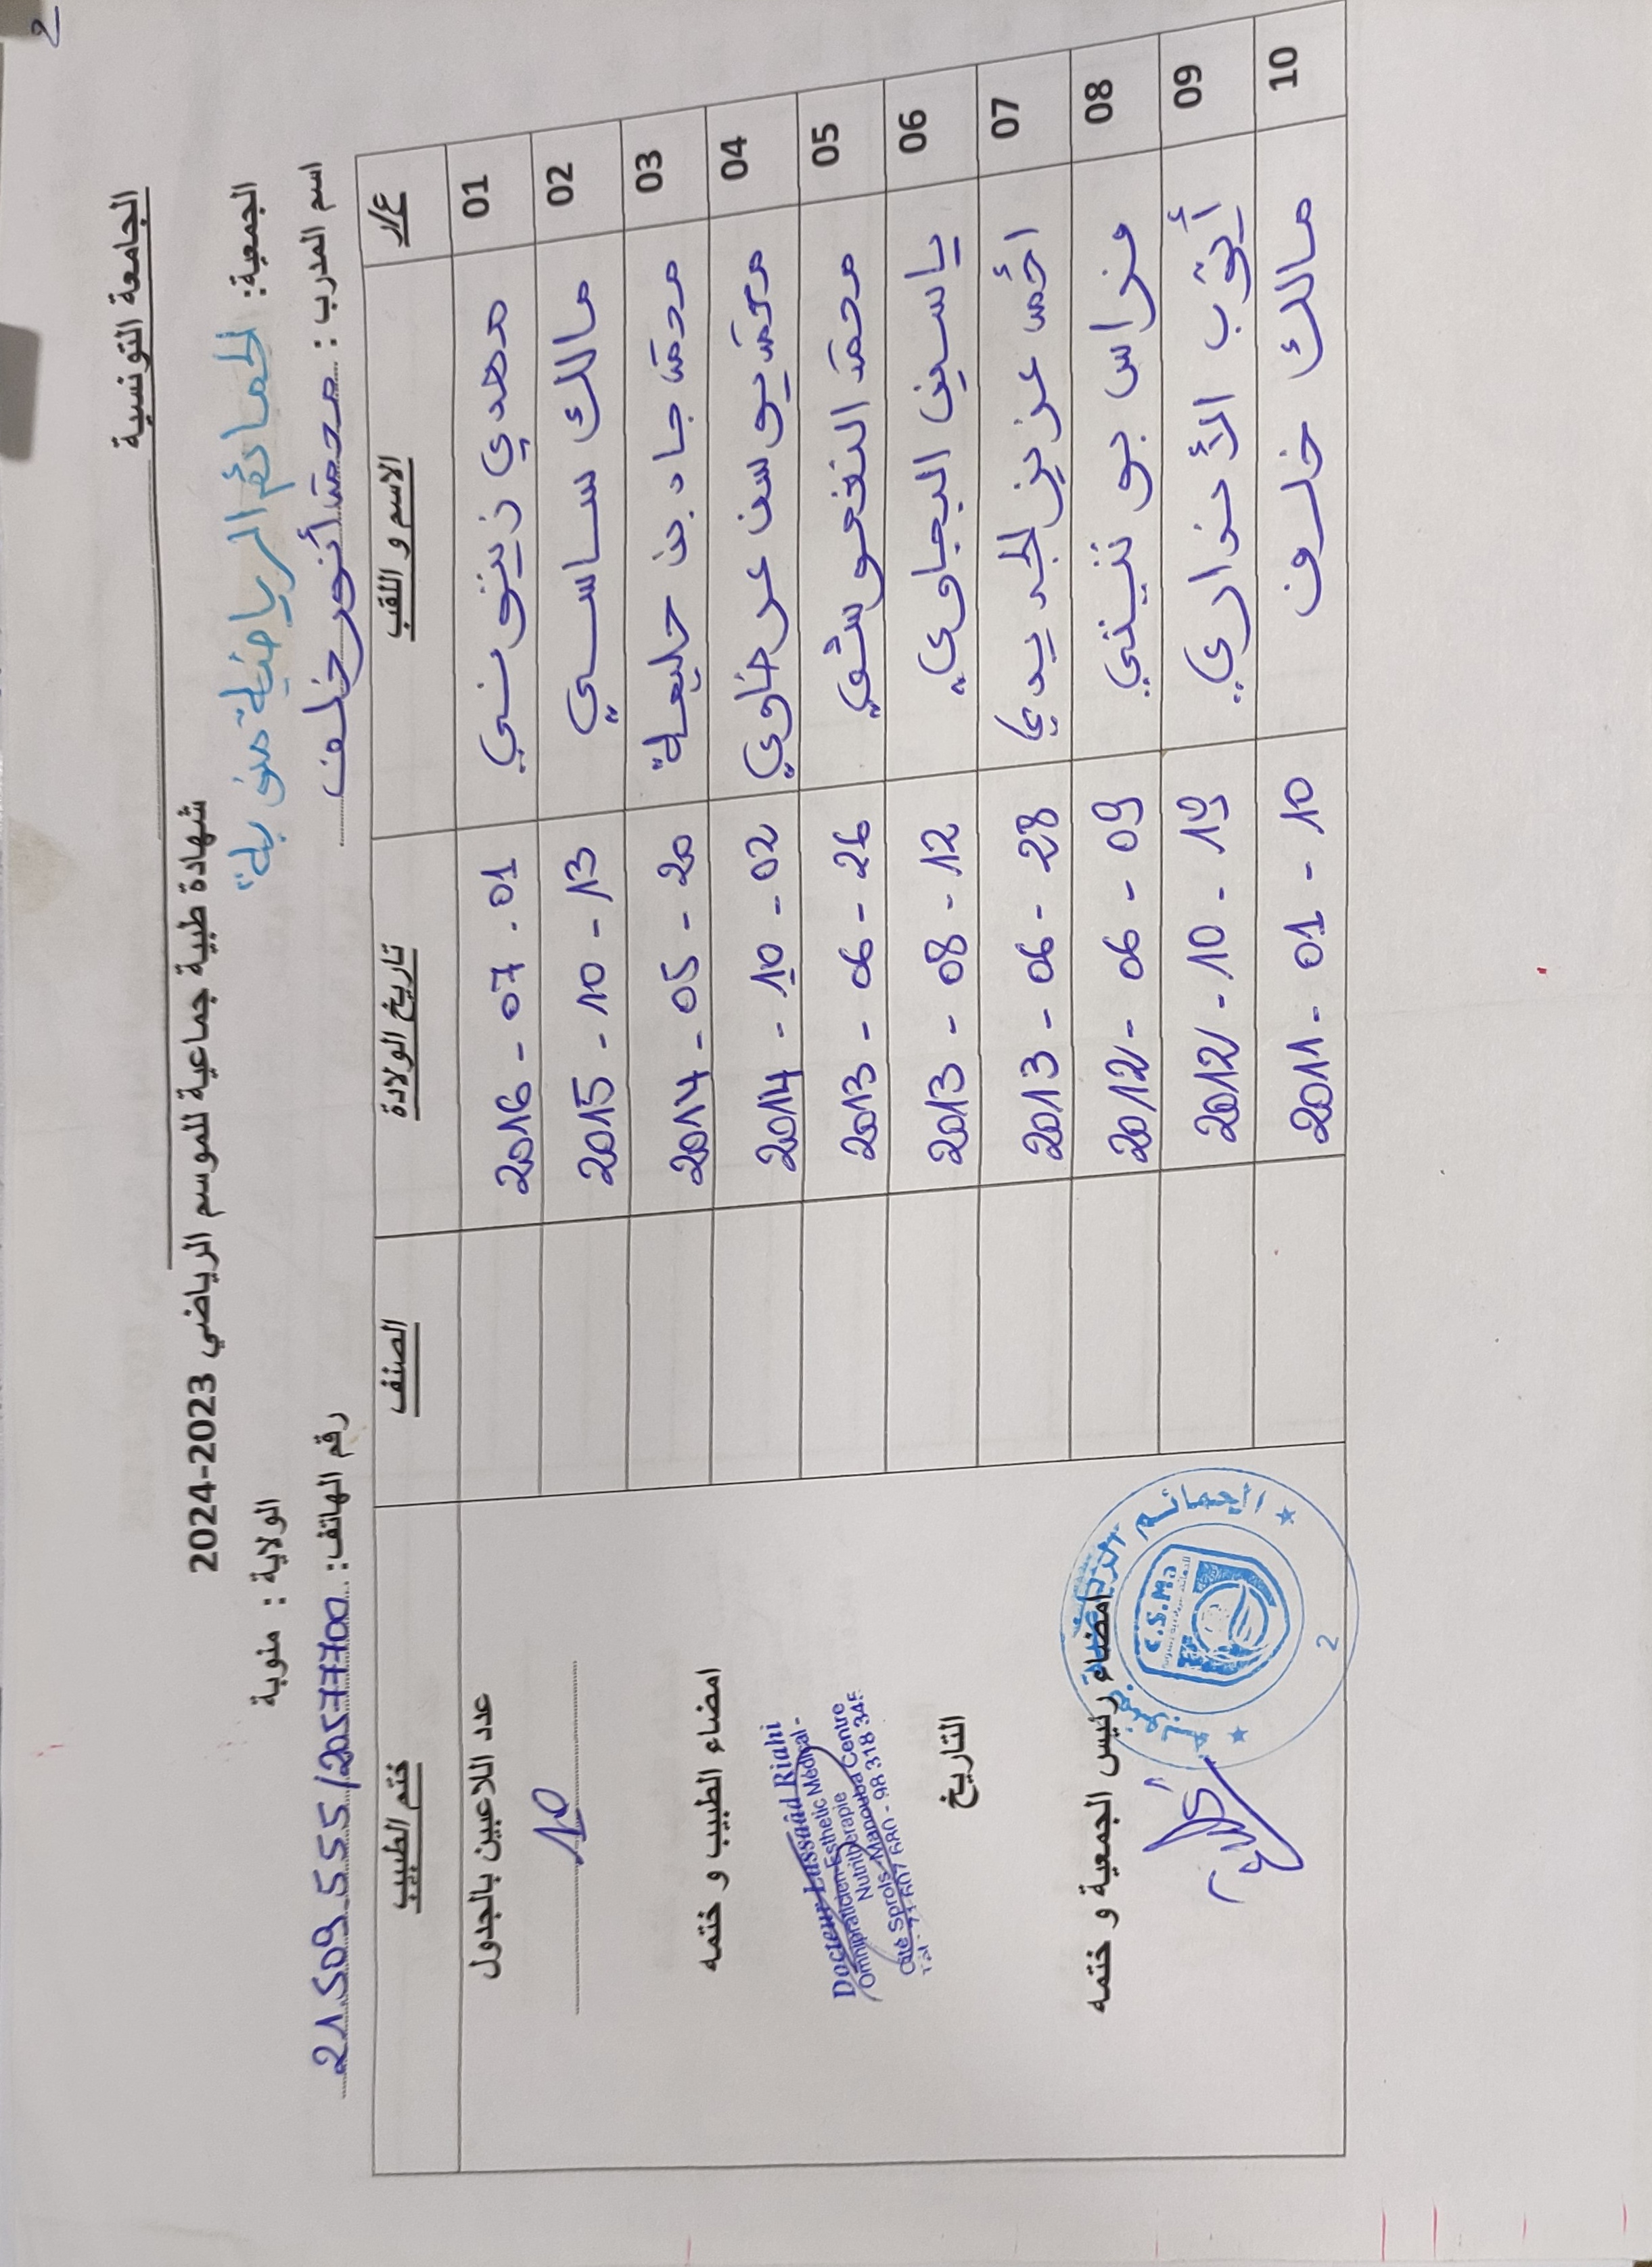 2
الجامعة التونسية
شهادة طبية جماعية للموسم الرياضي 2023-2024
الجمعية: الحمائم الرياضية منوبة
الولاية : منوبة
اسم المدرب : محمد أنور خلف
رقم الهاتف: 21.509.555/20577700
ع/ر الاسم و اللقب تاريخ الولادة الصنف ختم الطبيب
01 مهدي زينوني 2016 - 07 - 01
02 مالك ساسي 2015 - 10 - 13
03 محمد جاد بن حليمة 2014 - 05 - 20
04 محمد يوسف عرضاوي 2014 - 10 - 02
05 محمد 2013 - 06 - 26
06 ياسين البجاوي 2013 - 08 - 12
07 أحمد عزيز الجديدي 2013 - 06 - 28
08 فراس بو 2012 - 06 - 09
09 أيوب 2012 - 10 - 19
10 مالك خلف 2011 - 01 - 10
عدد اللاعبين بالجدول
10
امضاء الطبيب و ختمه
Docteur Lassaâd Riahi
Omnipraticien-Esthetic Médical -
Nutritherapie
Cité Sprols-Manouba Centre
Tél - 71 607 680 - 98 318 345
التاريخ
امضاء رئيس الجمعية و ختمه
الحمائم الرياضية
C.S.Ma
2